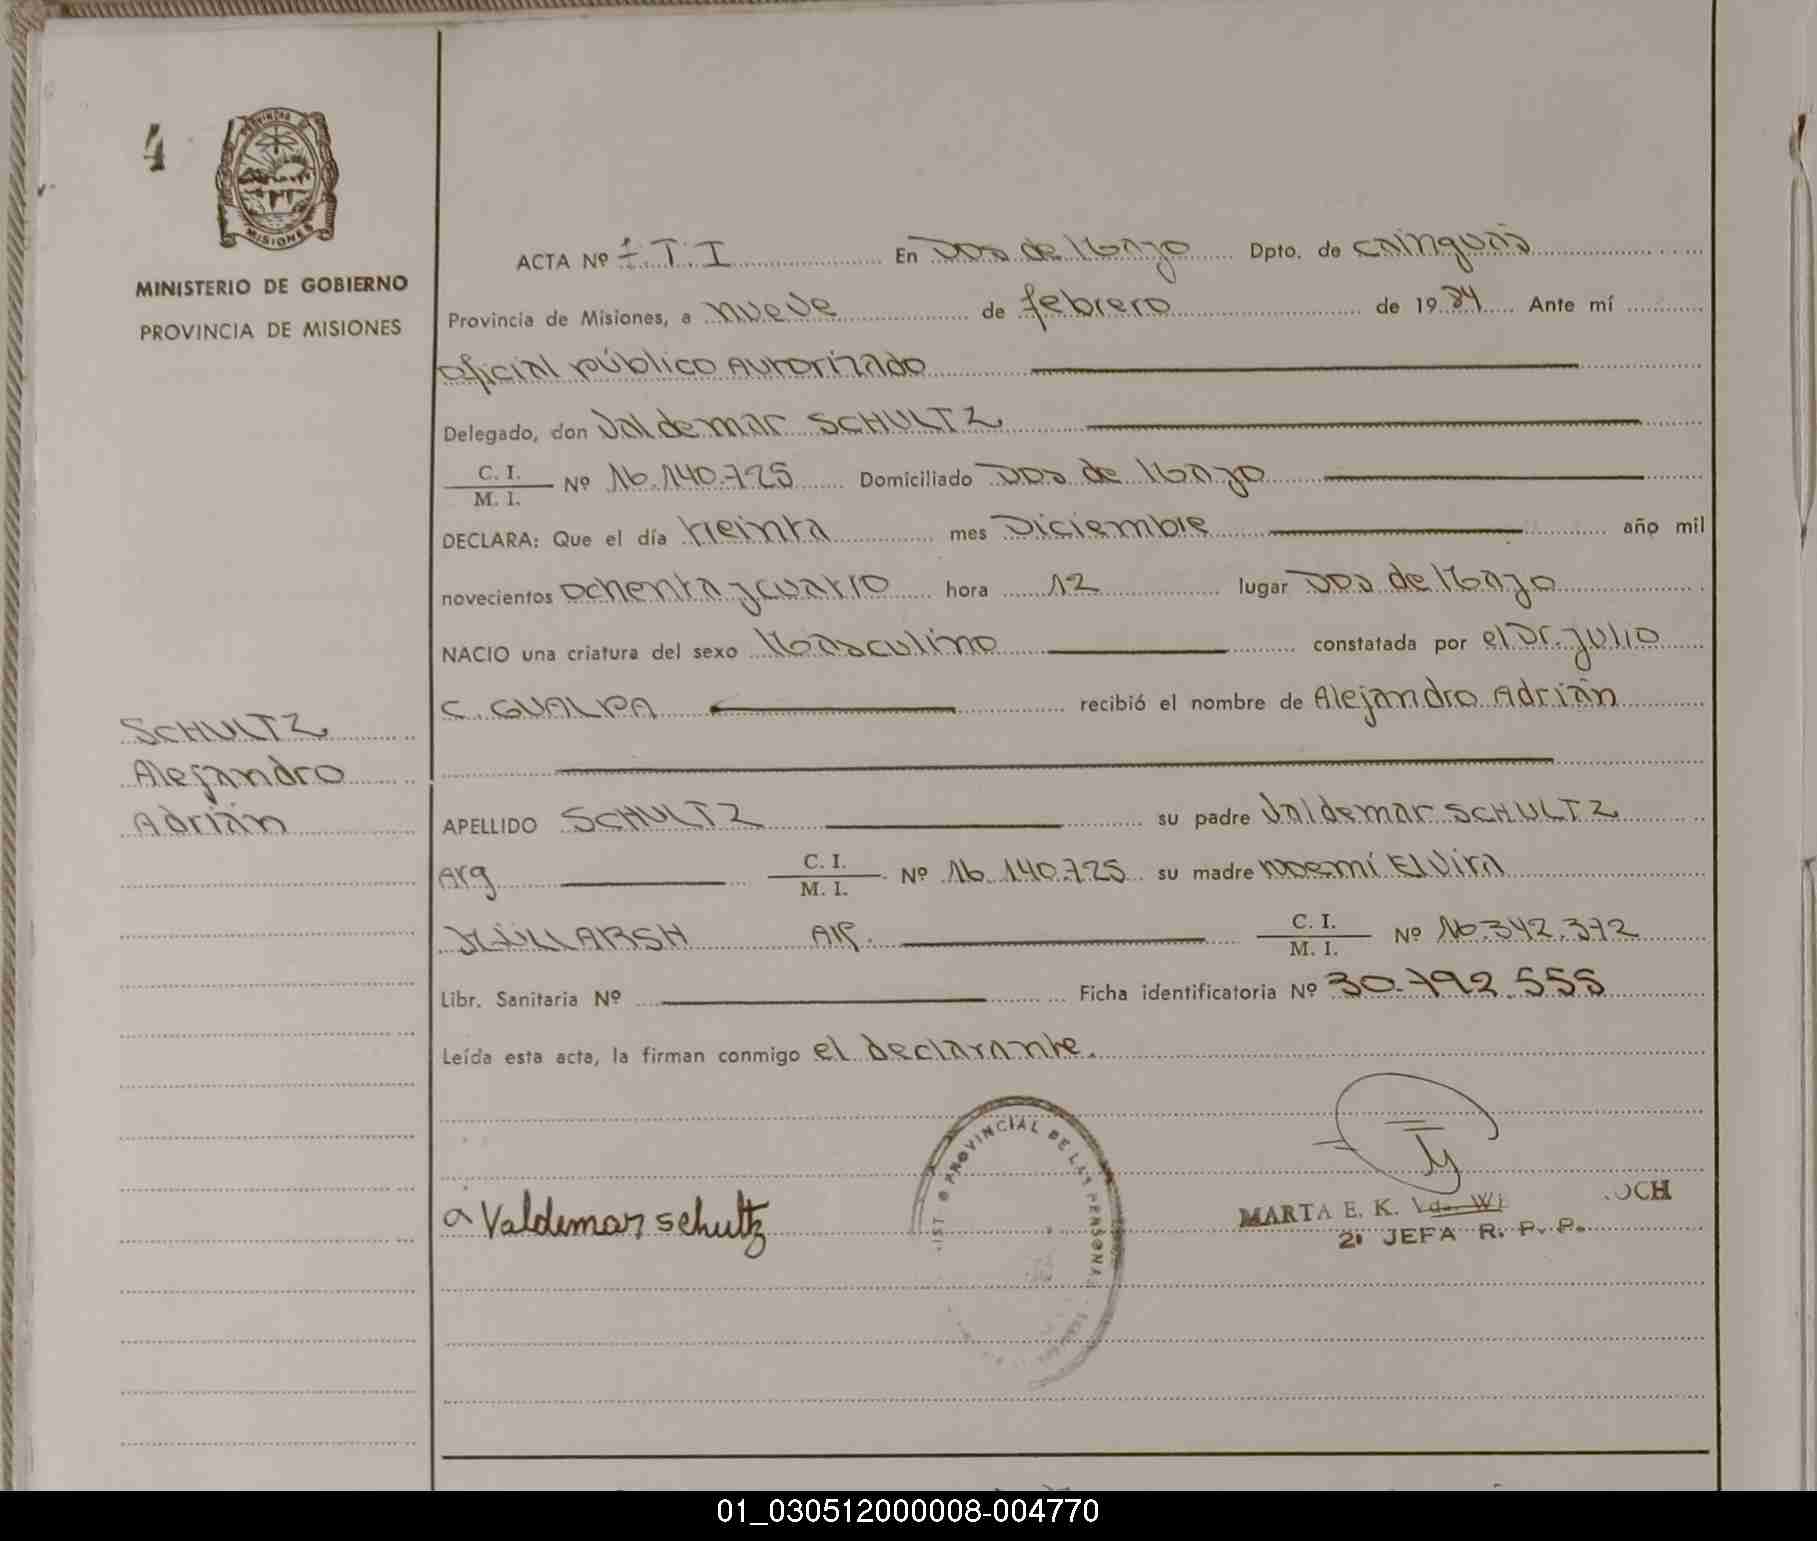 4
PROVINCIA DE
MISIONES
MINISTERIO DE GOBIERNO
PROVINCIA DE MISIONES
SCHULTZ
Alejandro
Adrián
ACTA Nº 4. T. I En Dos de Mayo Dpto. de Cainguás
Provincia de Misiones, a nueve de febrero de 1984 Ante mí
Oficial público Autorizado
Delegado, don Valdemar SCHULTZ
C. I.
M. I. Nº 16.140.725 Domiciliado Dos de Mayo
DECLARA: Que el día treinta mes Diciembre año mil
novecientos ochenta y cuatro hora 12 lugar Dos de Mayo
NACIO una criatura del sexo Masculino constatada por el Dr. Julio
C. GUALPA recibió el nombre de Alejandro Adrián
APELLIDO SCHULTZ su padre Valdemar SCHULTZ
Arg C. I.
M. I. Nº 16.140.725 su madre Noemí Elvira
C. I.
M. I. Nº 16.342.372
Libr. Sanitaria Nº Ficha identificatoria Nº 30.792.555
Leída esta acta, la firman conmigo el declarante.
PROVINCIAL DE LAS PERSONAS
a Valdemar schultz
MARTA E. K. Vda. OCH
2ª JEFA R. P. P.
01_030512000008-004770